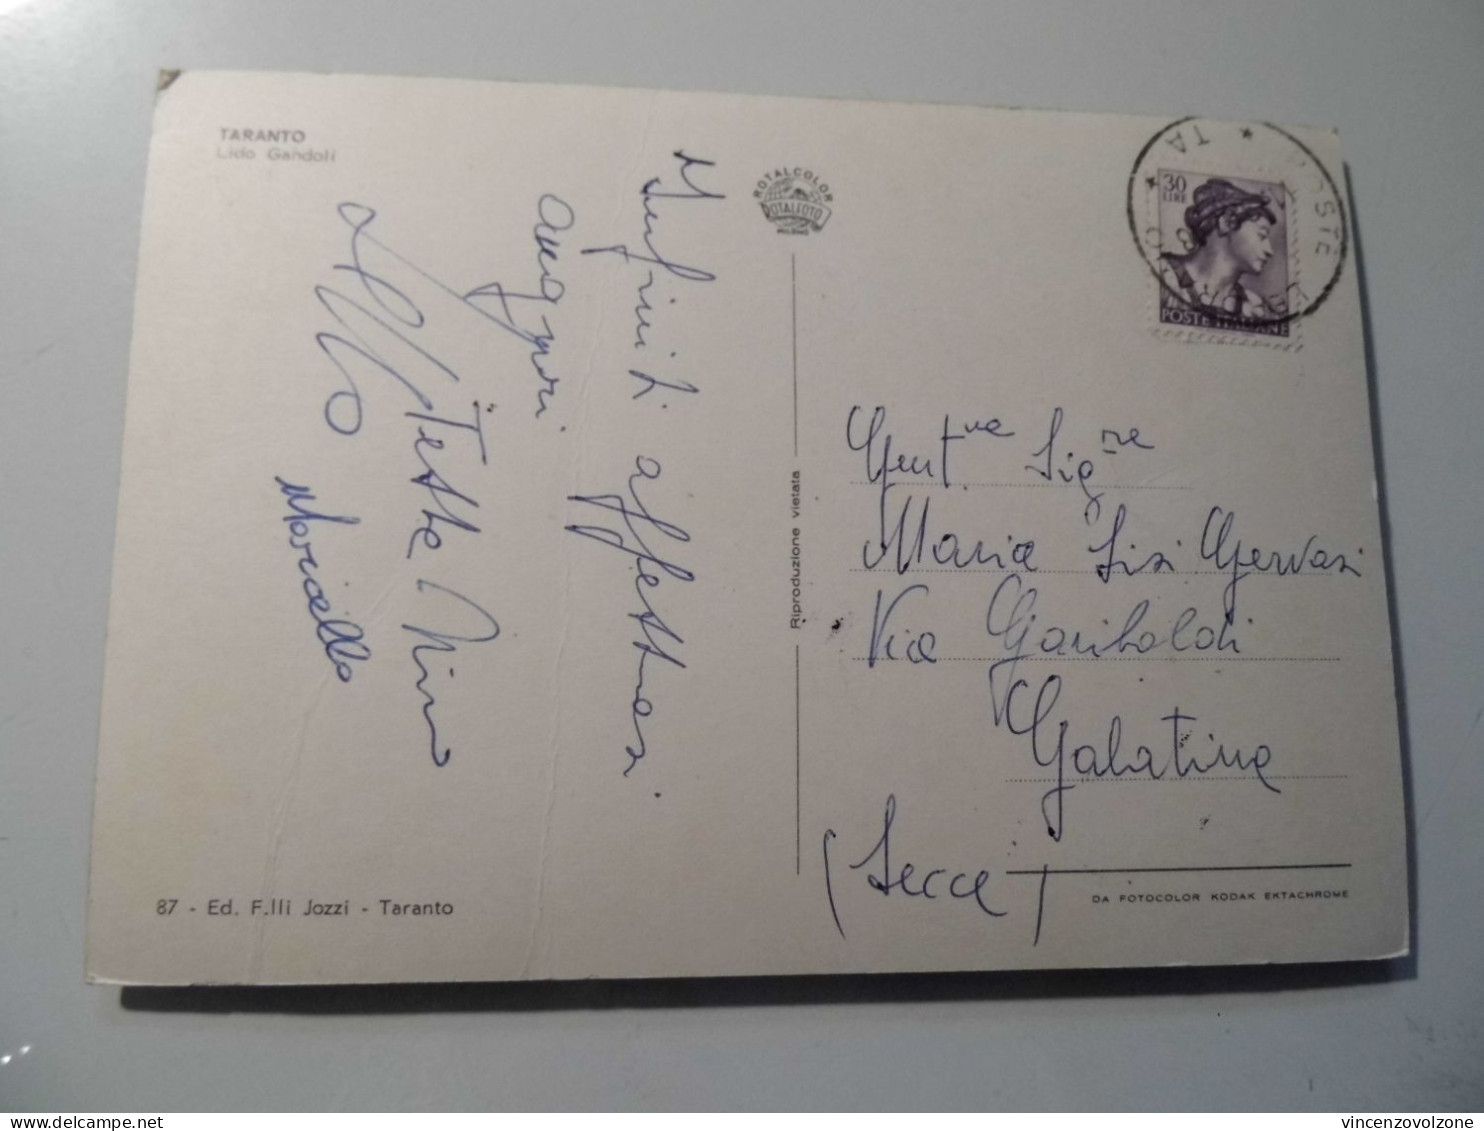 TARANTO
Lido Gandoli
Infiniti affettuosi
auguri
Tette Nino
Marcello
87 - Ed. F.lli Jozzi - Taranto
ROTALCOLOR
ROTALFOTO
MILANO
Riproduzione vietata
30
LIRE
POSTE ITALIANE
POSTE
TA
Gent.me Sig.re
Maria Lisi Gervasi
Via Garibaldi
Galatina
(Lecce)
DA FOTOCOLOR KODAK EKTACHROME
vincenzovolzone